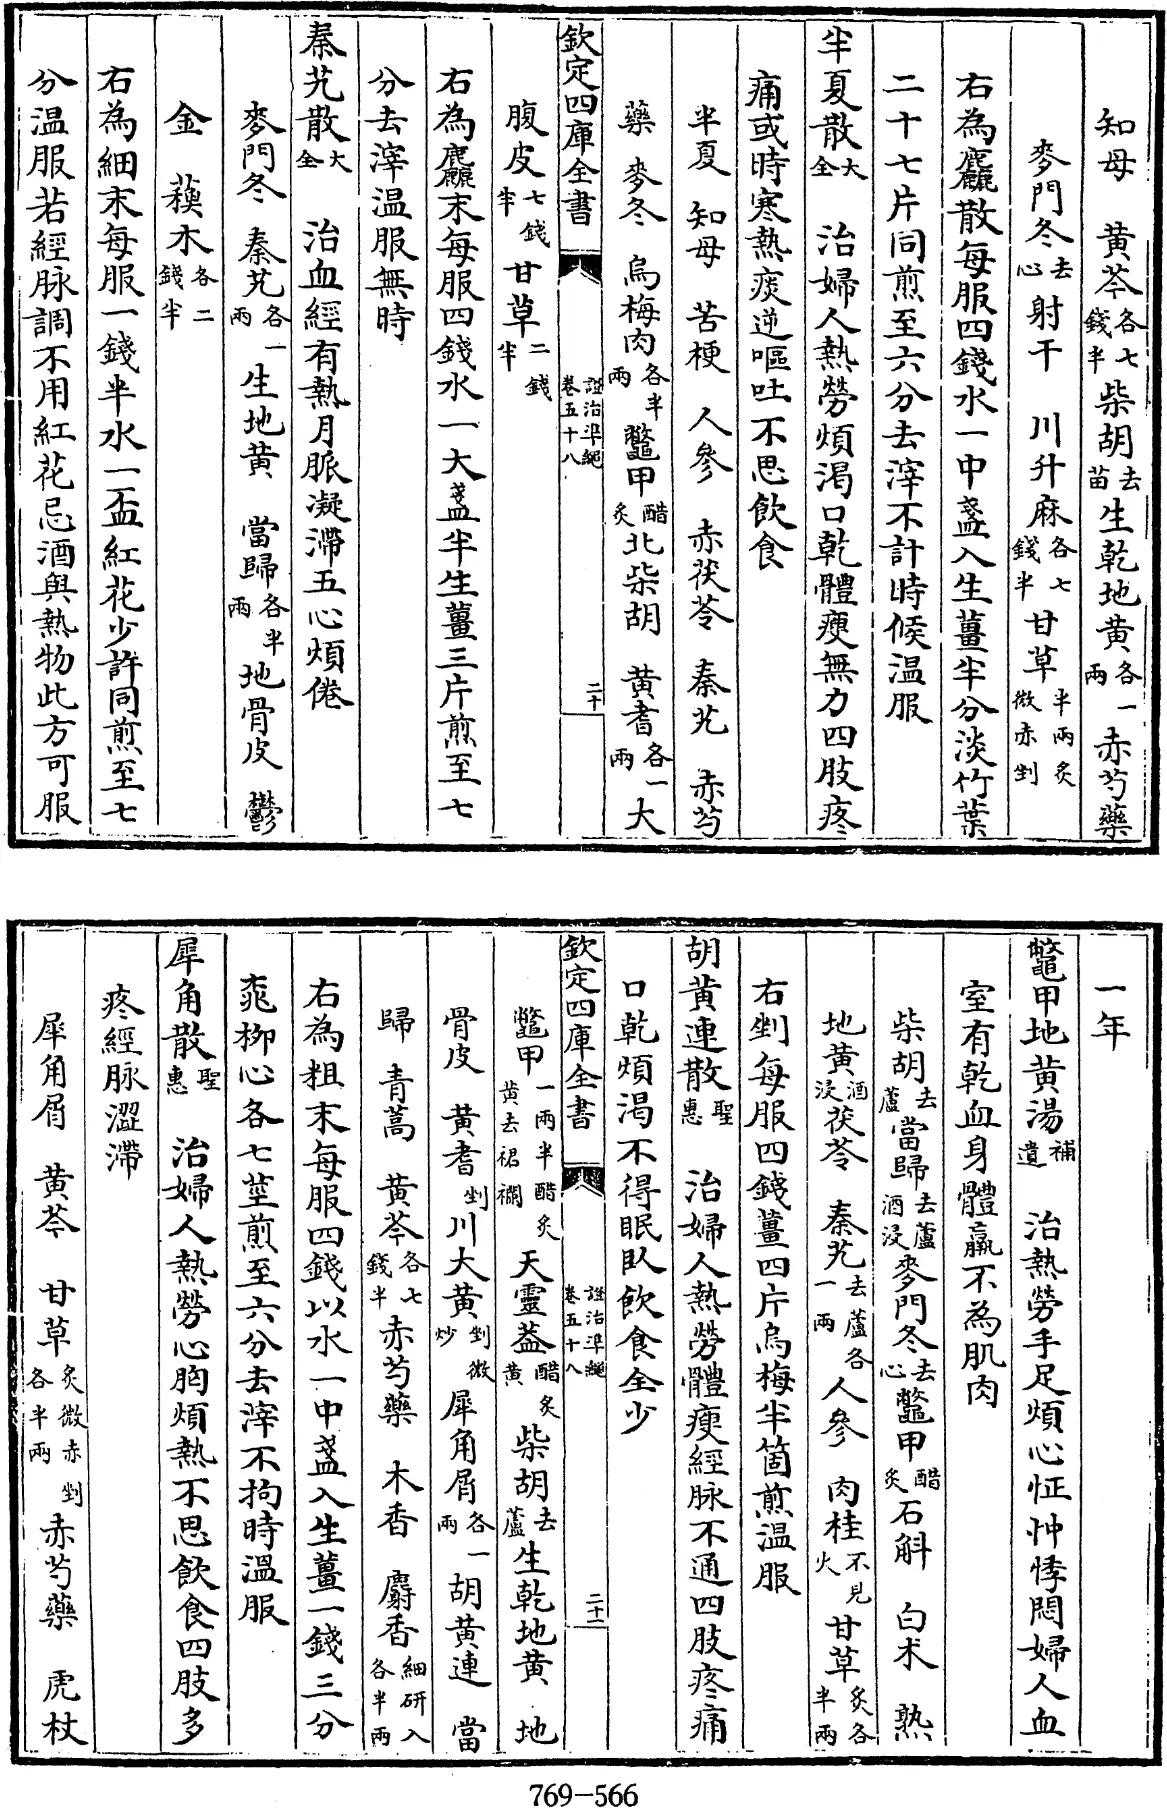 知母　黄芩各七錢半柴胡去苗生乾地黄各一兩赤芍藥
麥門冬去心射干　川升麻各七錢半甘草半兩炙微赤剉
右為麤散每服四錢水一中盞入生薑半分淡竹葉
二十七片同煎至六分去滓不計時候温服
半夏散大全　治婦人熱勞煩渴口乾體瘦無力四肢疼
痛或時寒熱痰逆嘔吐不思飲食
半夏　知母　苦梗　人參　赤茯苓　秦艽　赤芍
藥　麥冬　烏梅肉各半兩鼈甲醋炙北柴胡　黄耆各一兩大
欽定四庫全書　證治準繩卷五十八　二十
腹皮七錢半甘草二錢半
右為麤末每服四錢水一大盞半生薑三片煎至七
分去滓温服無時
秦艽散大全　治血經有熱月脈凝滯五心煩倦
麥門冬　秦艽各一兩生地黄　當歸各半兩地骨皮　鬱
金　蘓木各二錢半
右為細末每服一錢半水一盃紅花少許同煎至七
分温服若經脉調不用紅花忌酒與熱物此方可服
一年
鼈甲地黄湯補遺　治熱勞手足煩心怔忡悸悶婦人血
室有乾血身體羸不為肌肉
柴胡去蘆當歸去蘆酒浸麥門冬去心鼈甲醋炙石斛　白术　熟
地黄酒浸茯苓　秦艽去蘆各一兩人參　肉桂不見火甘草炙各半兩
右剉每服四錢薑四片烏梅半箇煎温服
胡黄連散聖惠　治婦人熱勞體瘦經脉不通四肢疼痛
口乾煩渴不得眠臥飲食全少
欽定四庫全書　證治準繩卷五十八　二十一
鼈甲一兩半醋炙黄去裙襴天靈葢醋炙黄柴胡去蘆生乾地黄　地
骨皮　黄耆剉川大黄剉微炒犀角屑各一兩胡黄連　當
歸　青蒿　黄芩各七錢半赤芍藥　木香　麝香細研入各半兩
右為粗末每服四錢以水一中盞入生薑一錢三分
桃柳心各七莖煎至六分去滓不拘時温服
犀角散聖惠　治婦人熱勞心胷煩熱不思飲食四肢多
疼經脉澀滯
犀角屑　黄芩　甘草炙微赤剉各半兩赤芍藥　虎杖
769-566